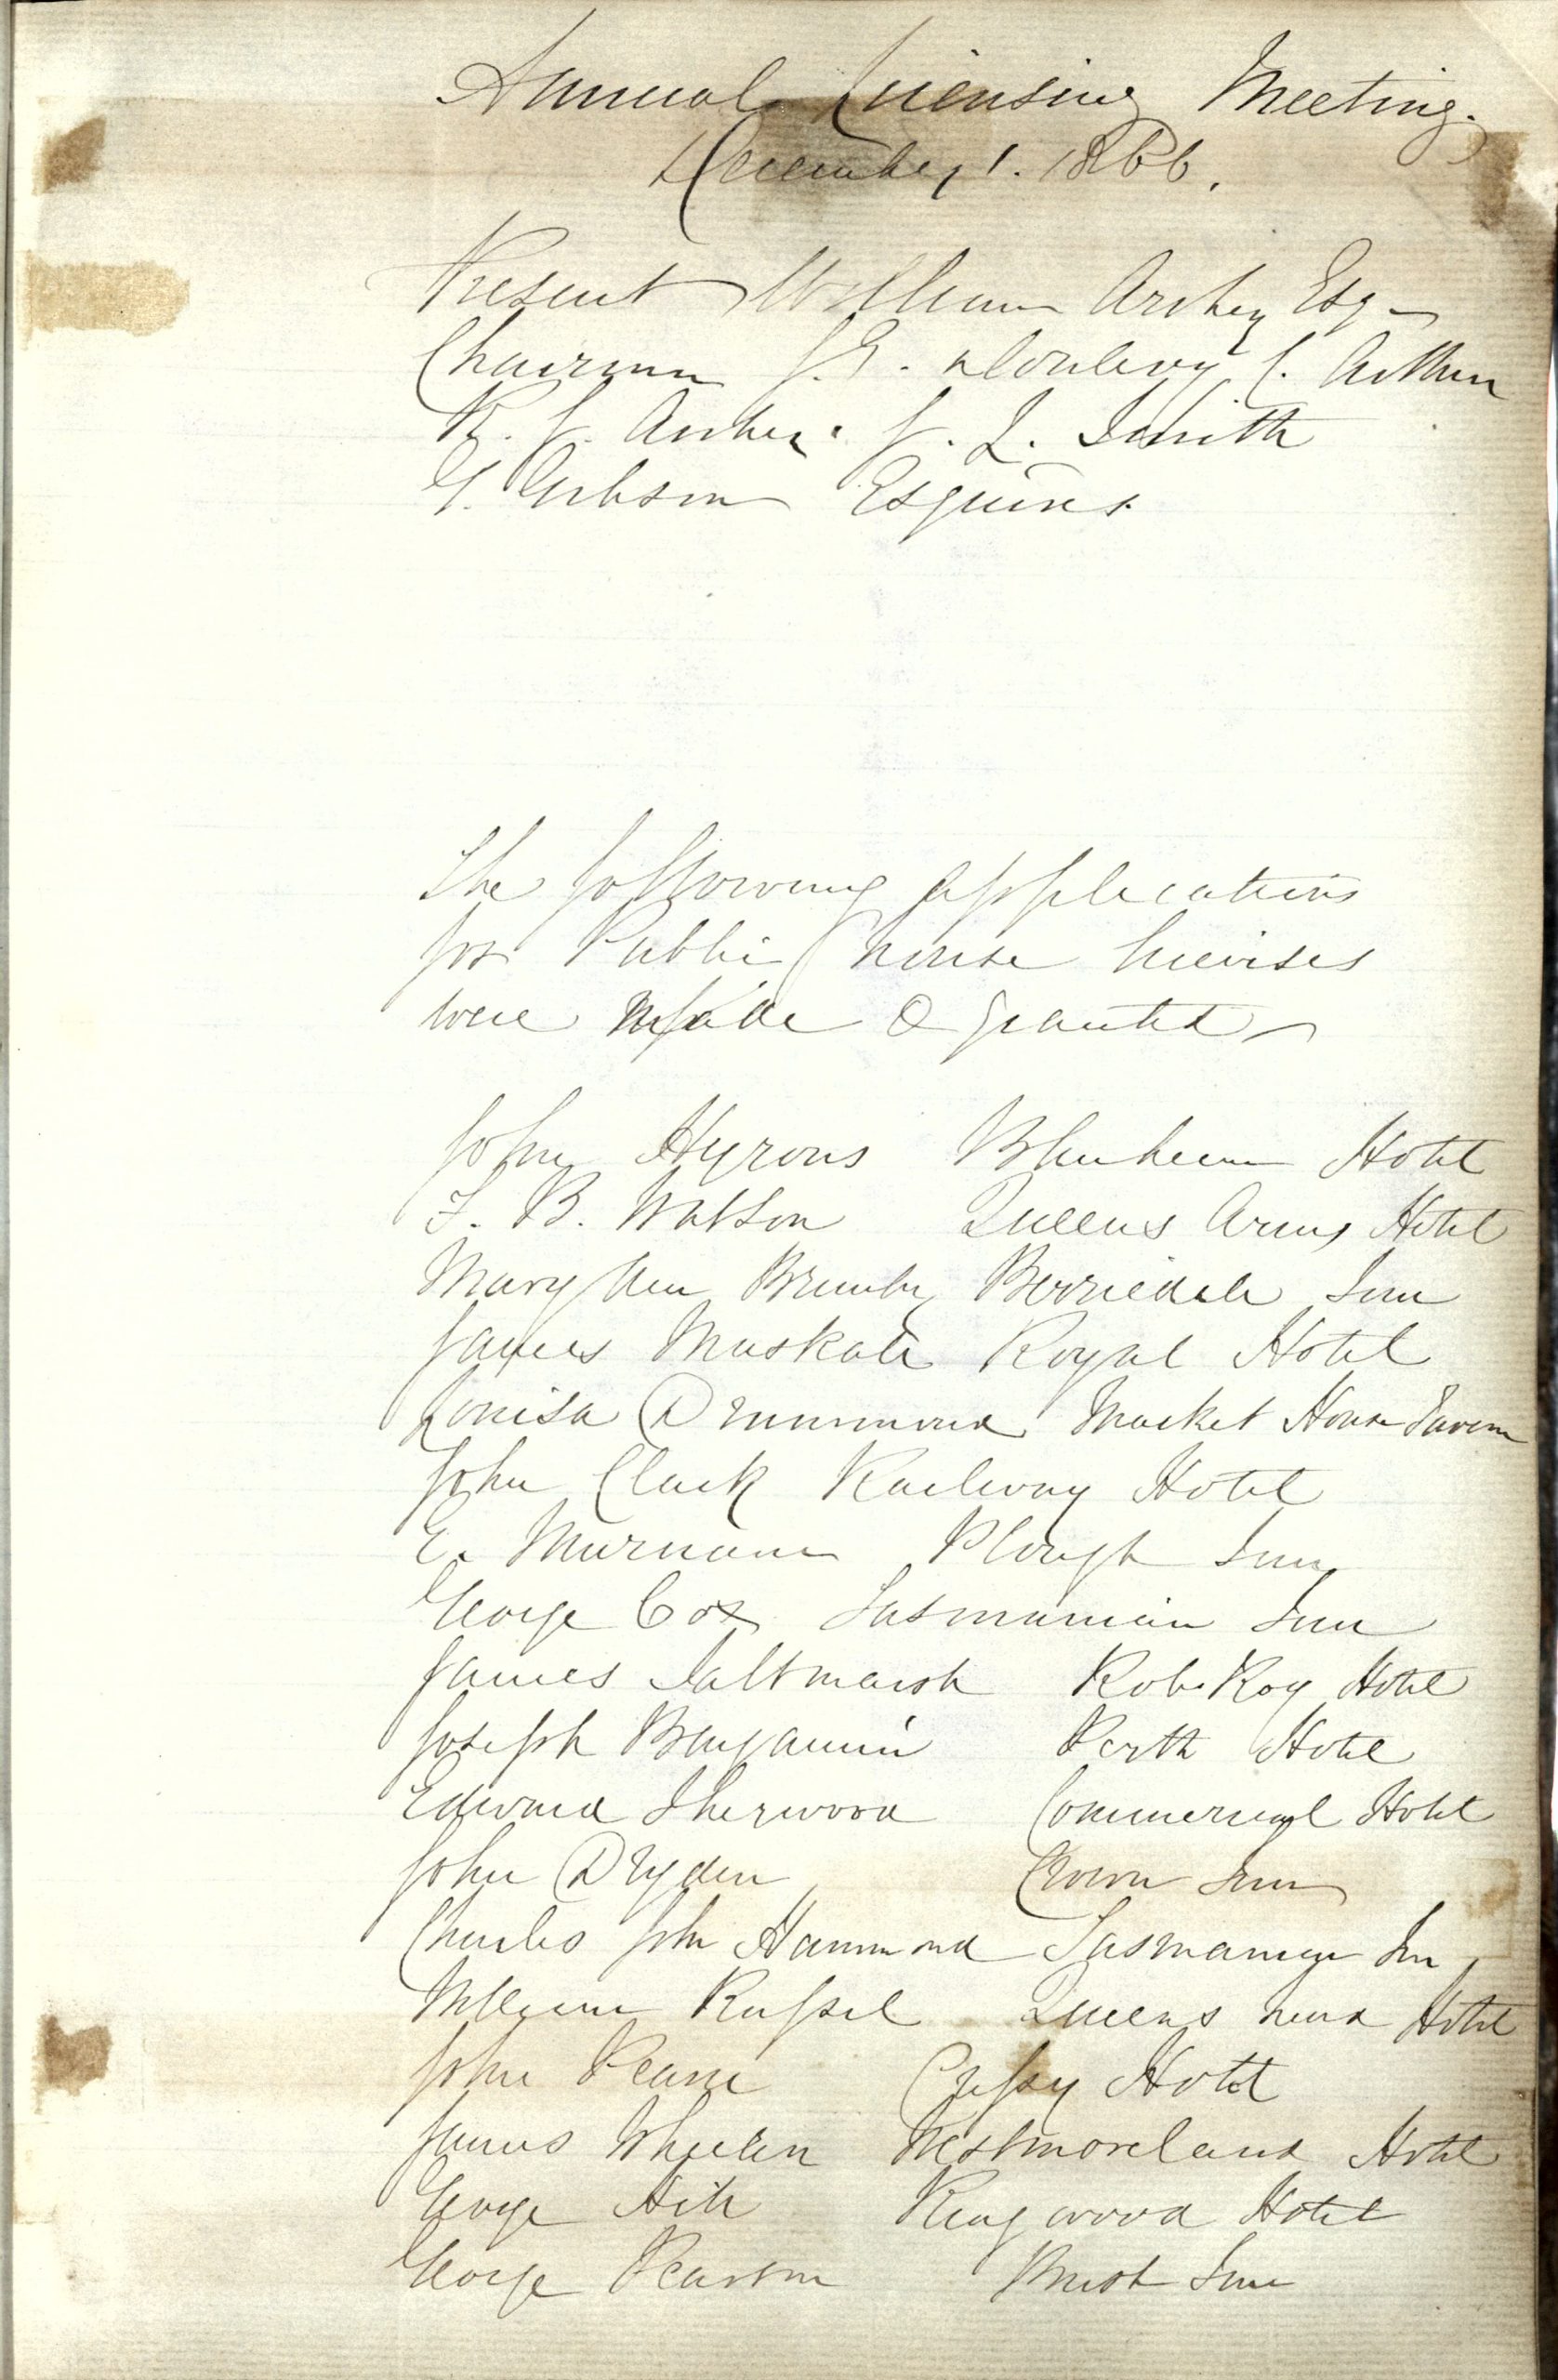 Annual Licensing Meeting.
December 1. 1866.
Present William Archer Esq
Chairman J. E. C. Arthur
R. J. Archer J. L. Smith
G. Gibson Esquires.
The following applications
for Public house licenses
were made & granted
John Hyrons Blenheim Hotel
F. B. Watson Queens Arms Hotel
Mary Ann Brumby Berriedale Inn
James Muskate Royal Hotel
Louisa Drummond Market House Tavern
John Clark Railway Hotel
E. Murnane Plough Inn
George Cox Tasmanian Inn
James Saltmarsh Rob Roy Hotel
Joseph Benjamin Perth Hotel
Edward Sherwood Commercial Hotel
John Dryden Crown Inn
Charles John Hammond Tasmanian Inn
William Russel Queens head Hotel
John Pearce Cressy Hotel
James Wheelen Westmoreland Hotel
George Ringwood Hotel
George Pearson Brush Inn